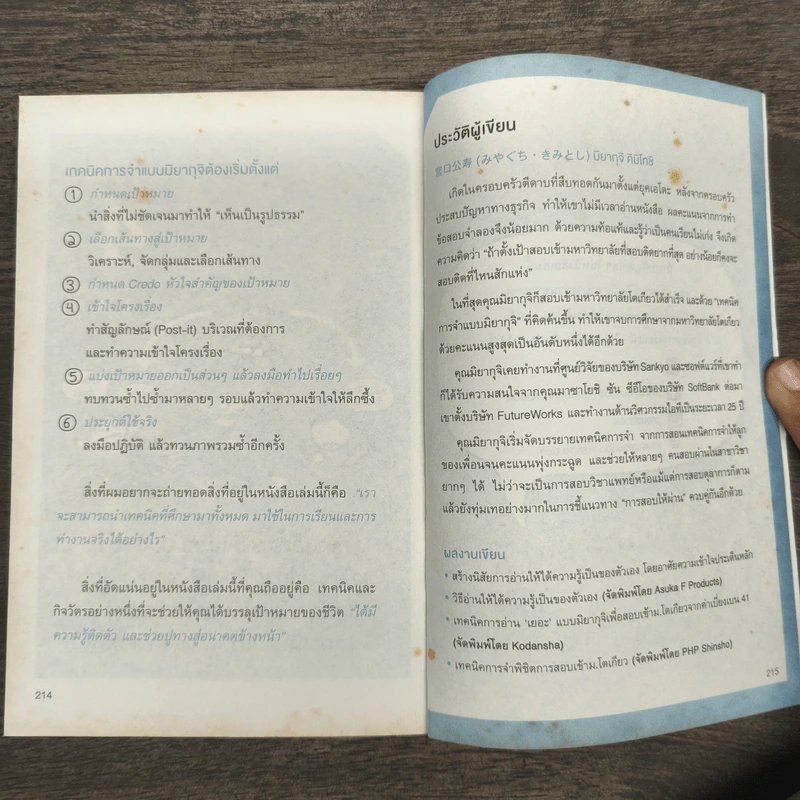 เทคนิคการจำแบบมิยากุจิต้องเริ่มตั้งแต่
① กำหนดเป้าหมาย
นำสิ่งที่ไม่ชัดเจนมาทำให้ "เห็นเป็นรูปธรรม"
② เลือกเส้นทางสู่เป้าหมาย
วิเคราะห์, จัดกลุ่มและเลือกเส้นทาง
③ กำหนด Credo หัวใจสำคัญของเป้าหมาย
④ เข้าใจโครงเรื่อง
ทำสัญลักษณ์ (Post-it) บริเวณที่ต้องการ
และทำความเข้าใจโครงเรื่อง
⑤ แบ่งเป้าหมายออกเป็นส่วนๆ แล้วลงมือทำไปเรื่อยๆ
ทบทวนซ้ำไปซ้ำมาหลายๆ รอบแล้วทำความเข้าใจให้ลึกซึ้ง
⑥ ประยุกต์ใช้จริง
ลงมือปฏิบัติ แล้วทวนภาพรวมซ้ำอีกครั้ง
สิ่งที่ผมอยากจะถ่ายทอดสิ่งที่อยู่ในหนังสือเล่มนี้ก็คือ "เรา
จะสามารถนำเทคนิคที่ศึกษามาทั้งหมด มาใช้ในการเรียนและการ
ทำงานจริงได้อย่างไร"
สิ่งที่อัดแน่นอยู่ในหนังสือเล่มนี้ที่คุณถืออยู่คือ เทคนิคและ
กิจวัตรอย่างหนึ่งที่จะช่วยให้คุณได้บรรลุเป้าหมายของชีวิต "ได้มี
ความรู้ติดตัว และช่วยปูทางสู่อนาคตข้างหน้า"
214
ประวัติผู้เขียน
宮口公寿 (みやぐち・きみとし) มิยากุจิ คิมิโทชิ
เกิดในครอบครัวตีดาบที่สืบทอดกันมาตั้งแต่ยุคเอโดะ หลังจากครอบครัว
ประสบปัญหาทางธุรกิจ ทำให้เขาไม่มีเวลาอ่านหนังสือ ผลคะแนนจากการทำ
ข้อสอบจำลองจึงน้อยมาก ด้วยความท้อแท้และรู้ว่าเป็นคนเรียนไม่เก่ง จึงเกิด
ความคิดว่า "ถ้าตั้งเป้าสอบเข้ามหาวิทยาลัยที่สอบติดยากที่สุด อย่างน้อยก็คงจะ
สอบติดที่ไหนสักแห่ง"
ในที่สุดคุณมิยากุจิก็สอบเข้ามหาวิทยาลัยโตเกียวได้สำเร็จ และด้วย "เทคนิค
การจำแบบมิยากุจิ" ที่คิดค้นขึ้น ทำให้เขาจบการศึกษาจากมหาวิทยาลัยโตเกียว
ด้วยคะแนนสูงสุดเป็นอันดับหนึ่งได้อีกด้วย
คุณมิยากุจิเคยทำงานที่ศูนย์วิจัยของบริษัท Sankyo และซอฟต์แวร์ที่เขาทำ
ก็ได้รับความสนใจจากคุณมาซาโยชิ ซัน ซีอีโอของบริษัท SoftBank ต่อมา
เขาตั้งบริษัท FutureWorks และทำงานด้านวิศวกรรมไอทีเป็นระยะเวลา 25 ปี
คุณมิยากุจิเริ่มจัดบรรยายเทคนิคการจำ จากการสอนเทคนิคการจำให้ลูก
ของเพื่อนจนคะแนนพุ่งกระฉูด และช่วยให้หลายๆ คนสอบผ่านในสาขาวิชา
ยากๆ ได้ ไม่ว่าจะเป็นการสอบวิชาแพทย์หรือแม้แต่การสอบตุลาการก็ตาม
แล้วยังทุ่มเทอย่างมากในการชี้แนวทาง "การสอบให้ผ่าน" ควบคู่กันอีกด้วย
ผลงานเขียน
• สร้างนิสัยการอ่านให้ได้ความรู้เป็นของตัวเอง โดยอาศัยความเข้าใจประเด็นหลัก
• วิธีอ่านให้ได้ความรู้เป็นของตัวเอง (จัดพิมพ์โดย Asuka F Products)
• เทคนิคการอ่าน 'เยอะ' แบบมิยากุจิเพื่อสอบเข้าม.โตเกียวจากค่าเบี่ยงเบน 41
(จัดพิมพ์โดย Kodansha)
• เทคนิคการจำพิชิตการสอบเข้าม.โตเกียว (จัดพิมพ์โดย PHP Shinsho)
215